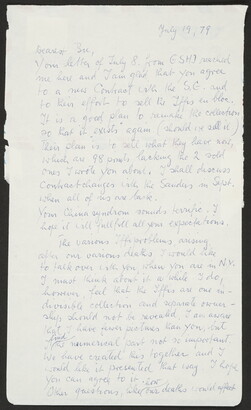 July 19, 79
Dearest Bu,
Your letter of July 8. from GSHJ reached
me here and I am glad that you agree
to a new Contract with the S.G. and
to their effort to sell the Iffs en bloc.
It is a good plan to "reunite" the collection
so that it "exists" again (should we sell it)
Their plan is to sell what they have now,
which are 98 prints lacking the 2 sold
ones I wrote you about. I shall discuss
Contract changes with the Sanders in Sept.
when all of us are back.
Your China syndrom sounds terrific. I
hope it will fullfill all your expectations
the various Iffs problems arising
after our various deaths I would like
to talk over with you, when you are in N.Y.
I must think about it a while. I do,
however, feel that the Iffs are one in-
divisible collection and separate owner-
ship should not be revealed. I am aware
that I have fewer pictures than you, but
find the numerical part not so important
We have created this together and I
would like it presented that way. I hope
you can agree to it now.
Other questions, whether deaths could affect